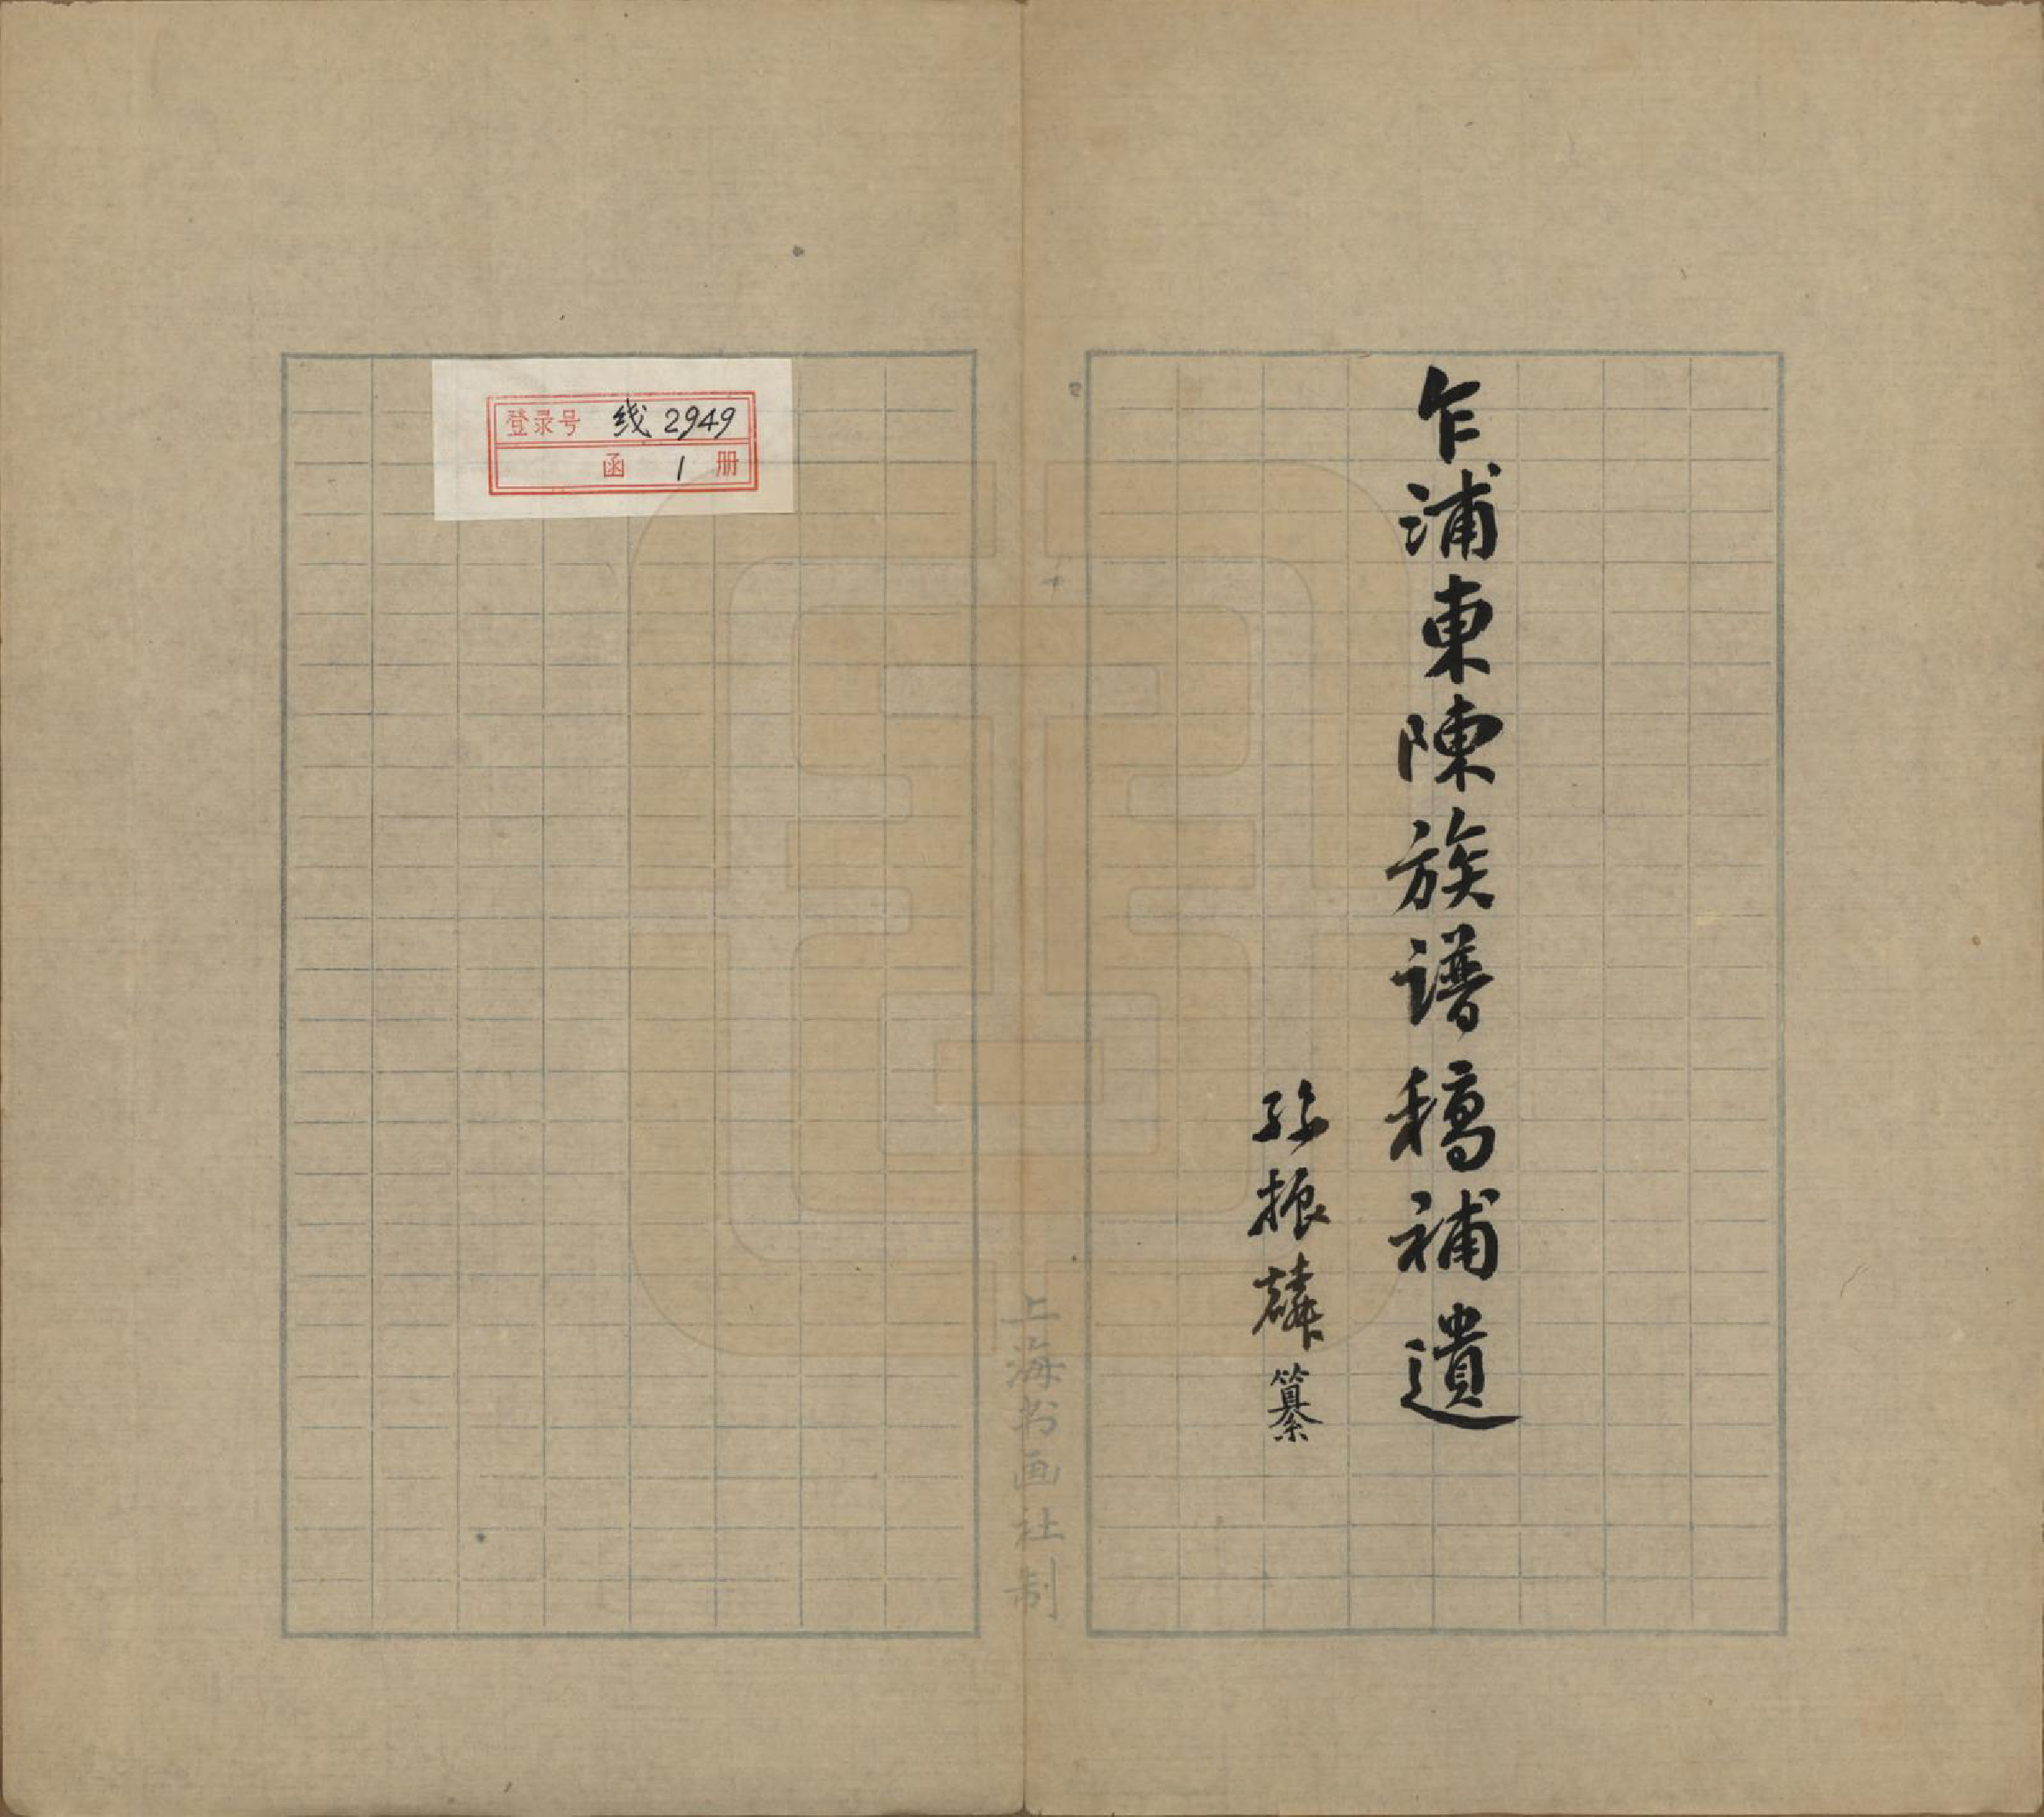 乍浦東陳族譜稿補遺
孫振麟纂
上海书画社制
登录号 线2949
函 1 册